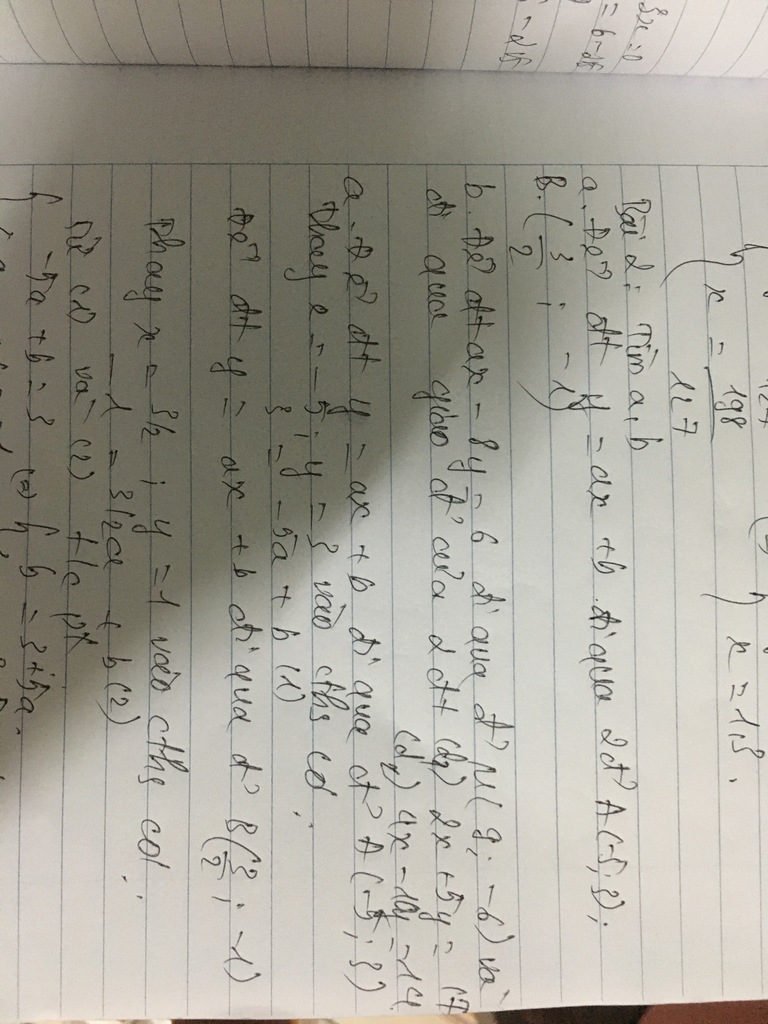 3x = 0
= b - 25
x = 198
127
x = 1,3.
Bài 2: Tìm a, b
a. Để đt y = ax + b đi qua 2 đ' A(-5; 3);
B. (3/2; -1)
b. Để đt ax - 8y = 6 đi qua đ' M(9; -6) và
đi qua giao đ' của 2 đt (d1) 2x + 5y = 17
(d2) 4x - 10y = 14.
a. Để đt y = ax + b đi qua đ' A(-5; 3)
thay x = -5; y = 3 vào cths có:
3 = -5a + b (1)
Để đt y = ax + b đi qua đ' B(3/2; -1)
thay x = 3/2; y = 1 vào cths có:
-1 = 3/2a + b (2)
Từ (1) và (2) + hpt
-5a + b = 3 (=) b = 3 + 5a